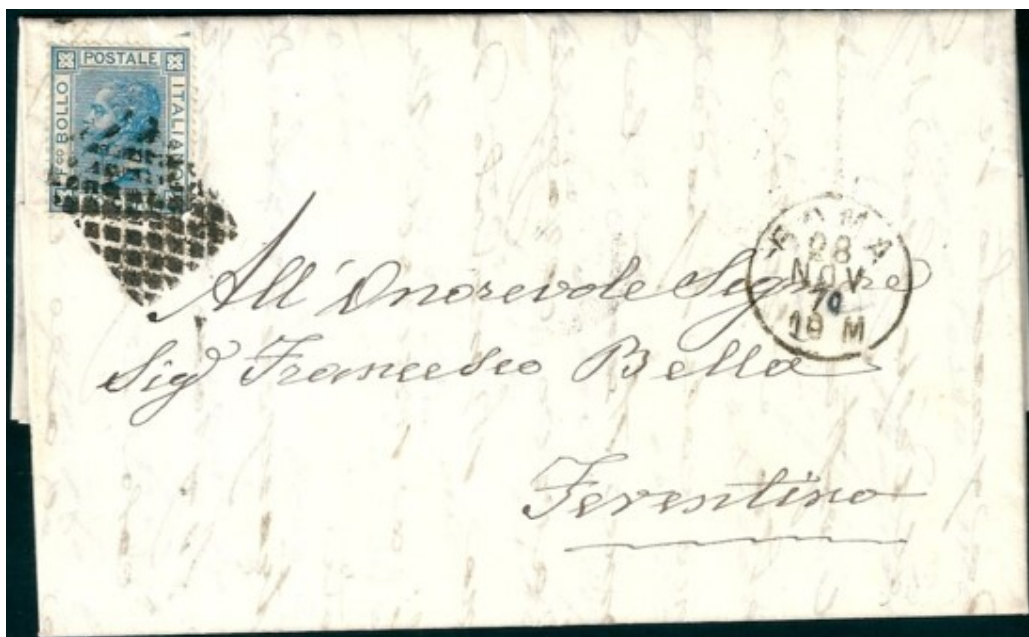 POSTALE
Fco BOLLO
ITALIANO
ROMA
28
NOV
70
10 M
All' Onorevole Signore
Sigr Francesco Bella
Ferentino